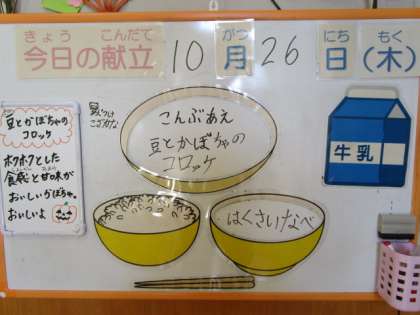 きょう こんだて がつ にち もく
今日の献立 10月26日(木)
こんぶあえ
豆とかぼちゃの
コロッケ
はくさいなべ
牛乳
豆とかぼちゃの
コロッケ
ホクホクとした
食感と甘味が
おいしいかぼちゃ。
おいしいよ